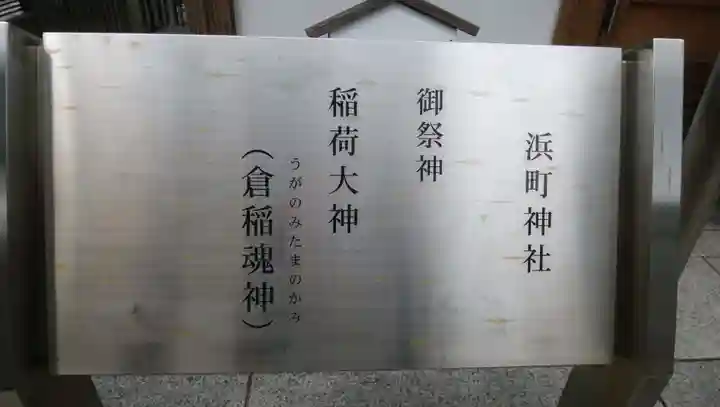 浜町神社
御祭神
稲荷大神
うがのみたまのかみ
（倉稲魂神）